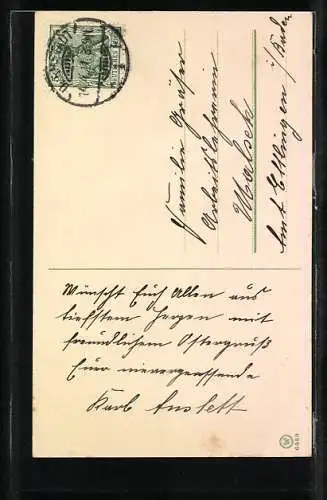 Familie Gräser
Arbeitslehrerin
Malsch
Amt Ettlingen i/Baden
Wünscht Euch Allen aus
tiefstem Herzen mit
freundlichem Ostergruß
Eure
Karl
6469